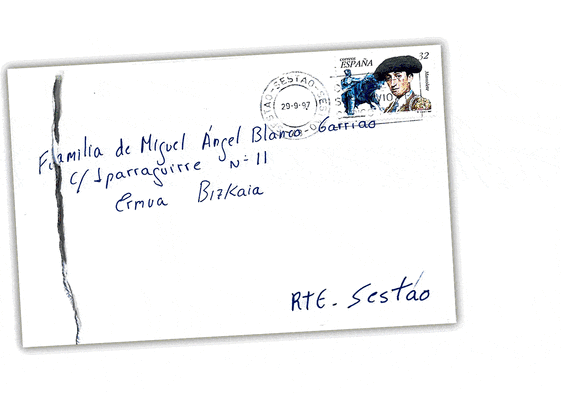 CORREOS
ESPAÑA
32
Manolete
SESTAO-SESTAO
29-9-97
Familia de Miguel Ángel Blanco Garrido
C/ Iparraguirre Nº 11
Ermua Bizkaia
RTE- Sestao